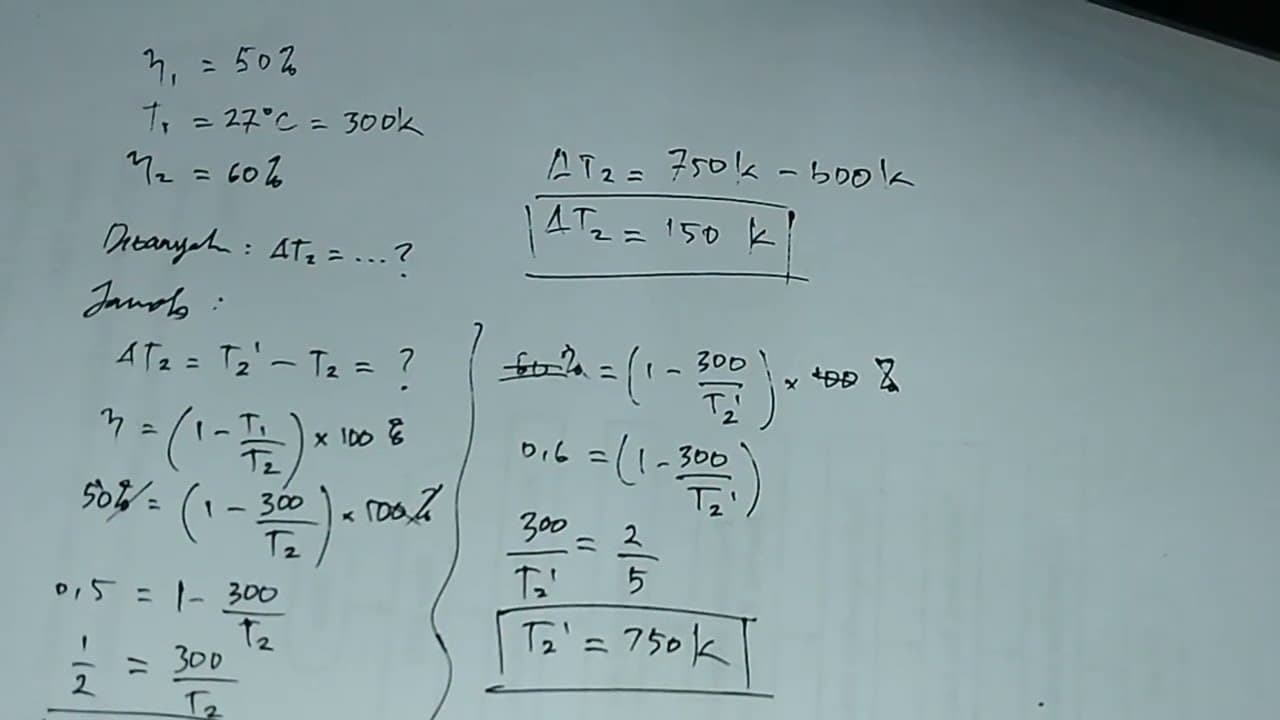 η₁ = 50%
T₁ = 27°C = 300k
η₂ = 60%
Ditanyah : ΔT₂ = ... ?
Jawab :
ΔT₂ = T₂' - T₂ = ?
η = (1 - T₁/T₂) × 100 %
50% = (1 - 300/T₂) × 100%
0,5 = 1 - 300/T₂
1/2 = 300/T₂
ΔT₂ = 750k - 600k
ΔT₂ = 150 k
60% = (1 - 300/T₂') × 100 %
0,6 = (1 - 300/T₂')
300/T₂' = 2/5
T₂' = 750k